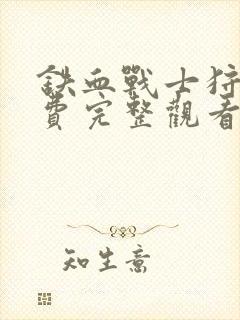 鉄血戰士狩
費完整觀看
知生意